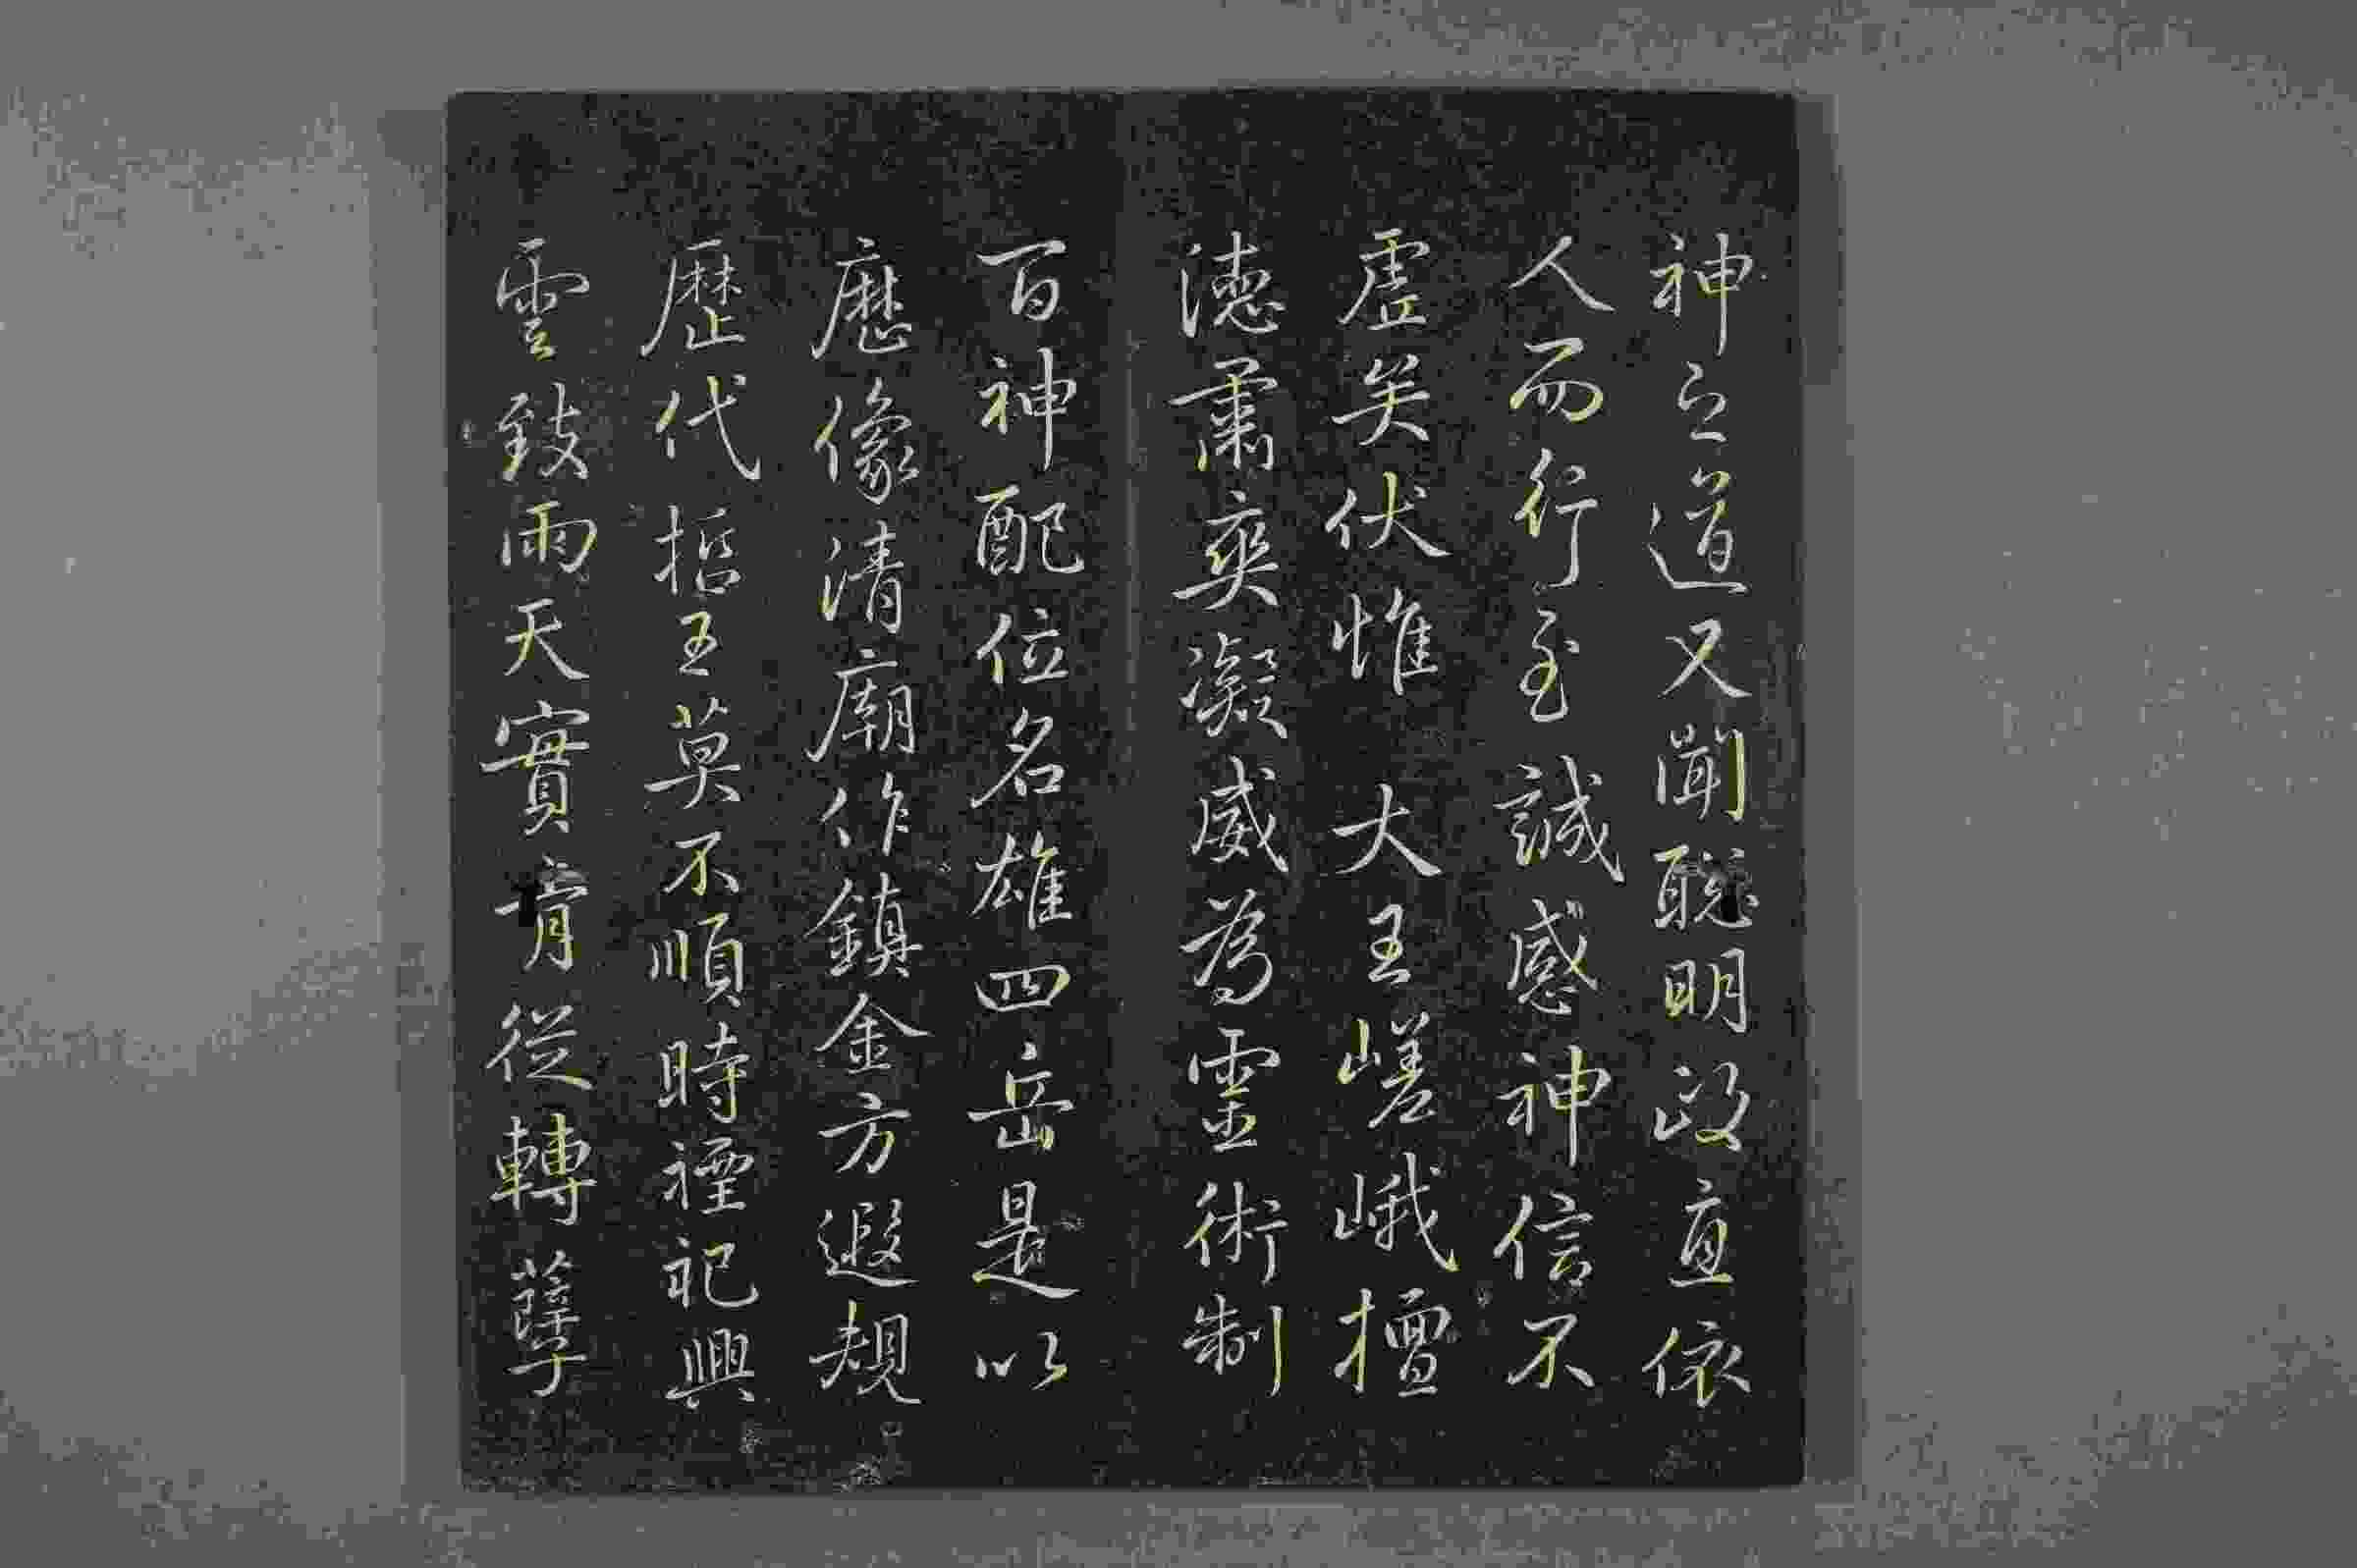 神之道又聞聡明政直依
人而行至誠感神信不
虛矣伏惟 大王嵯峨擅
徳肅爽凝威為靈術制
百神配位名雄四岳是以
歷像清廟作鎮金方遐規
歷代哲王莫不順時禋祀興
雲致雨天實肯從轉孽